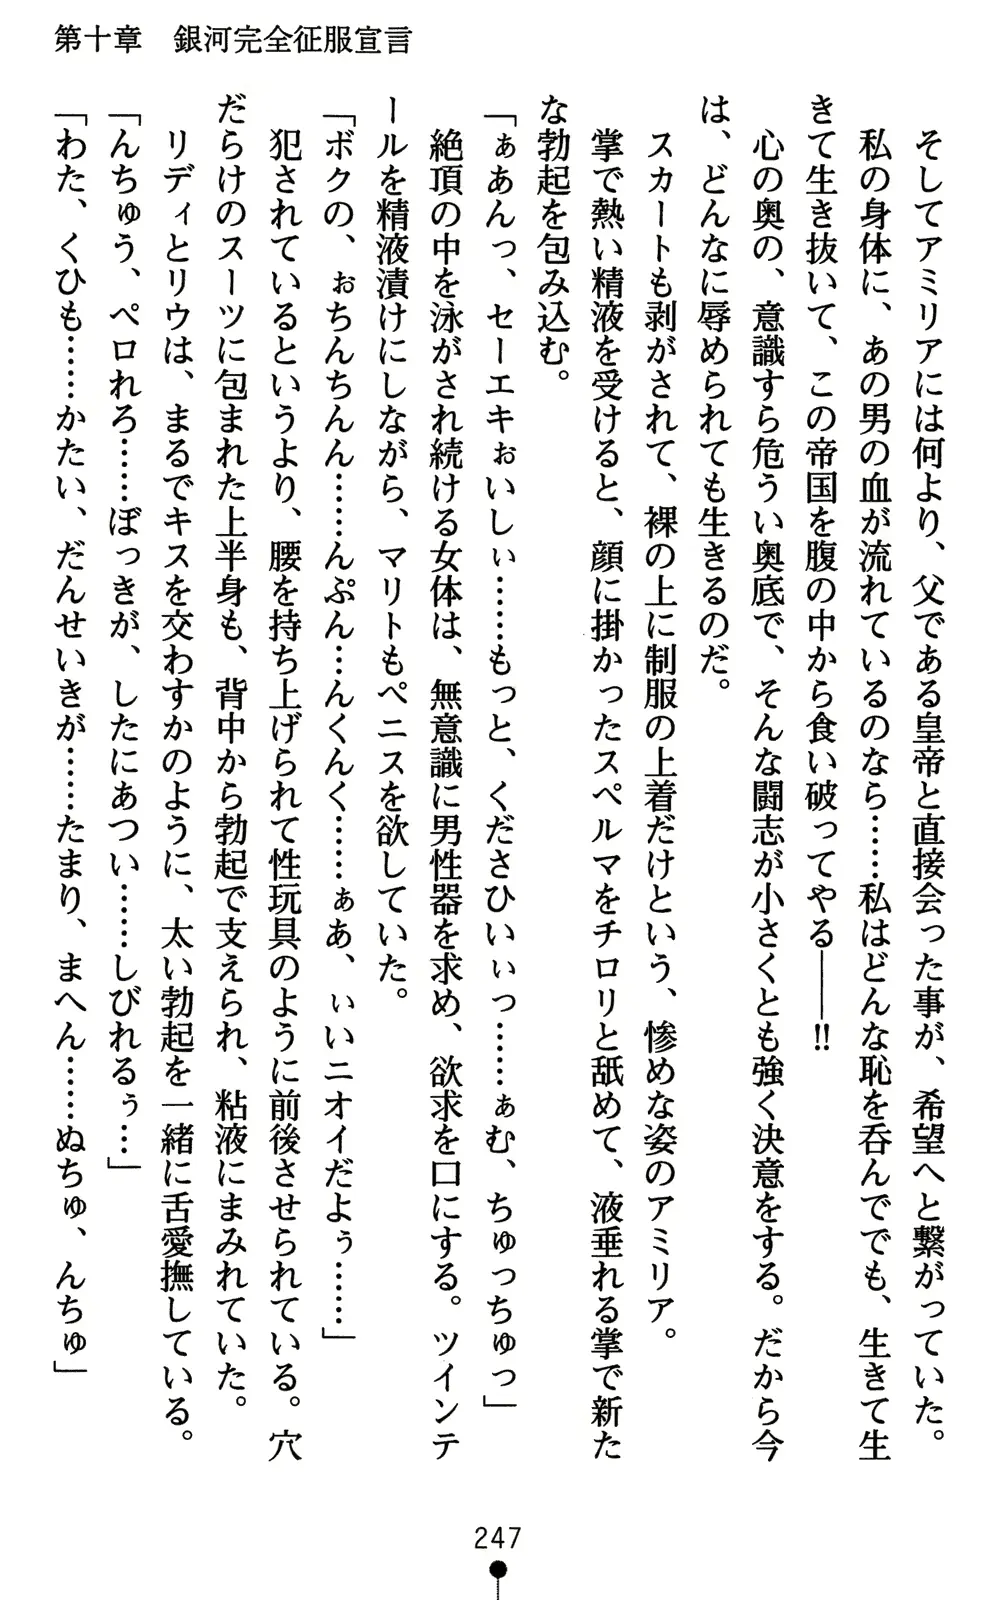 第十章　銀河完全征服宣言
そしてアミリアには何より、父である皇帝と直接会った事が、希望へと繋がっていた。
私の身体に、あの男の血が流れているのなら……私はどんな恥を呑んででも、生きて生
きて生き抜いて、この帝国を腹の中から食い破ってやる――!!
心の奥の、意識すら危うい奥底で、そんな闘志が小さくとも強く決意をする。だから今
は、どんなに辱められても生きるのだ。
スカートも剥がされて、裸の上に制服の上着だけという、惨めな姿のアミリア。
掌で熱い精液を受けると、顔に掛かったスペルマをチロリと舐めて、液垂れる掌で新た
な勃起を包み込む。
「ぁあんっ、セーエキぉいしぃ……もっと、くださひいぃっ……ぁむ、ちゅっちゅっ」
絶頂の中を泳がされ続ける女体は、無意識に男性器を求め、欲求を口にする。ツインテ
ールを精液漬けにしながら、マリトもペニスを欲していた。
「ボクの、ぉちんちんん……んぷん…んくんく……ぁあ、ぃいニオイだよぅ……」
犯されているというより、腰を持ち上げられて性玩具のように前後させられている。穴
だらけのスーツに包まれた上半身も、背中から勃起で支えられ、粘液にまみれていた。
リディとリウは、まるでキスを交わすかのように、太い勃起を一緒に舌愛撫している。
「んちゅう、ペロれろ……ぼっきが、したにあつい……しびれるぅ…」
「わた、くひも……かたい、だんせいきが……たまり、まへん……ぬちゅ、んちゅ」
247